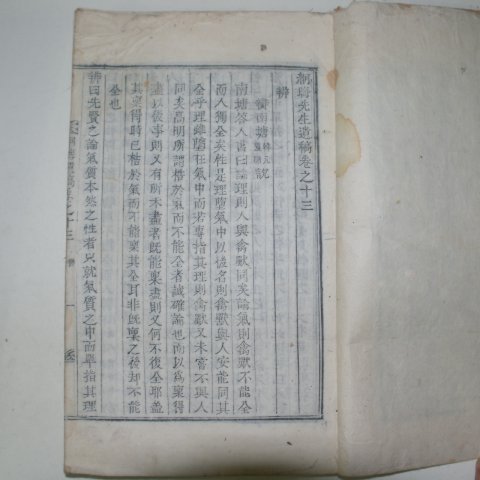 絅齋先生遺稿卷之十三
辨
辨南塘韓元震說
南塘答人書曰論理則人與禽獸同矣論氣則禽獸不能全
而人獨全矣性是理墮氣中以後名則禽獸與人安能同其
全乎理雖墮在氣中而若專指其理則禽獸又未嘗不與人
同矣高明所謂梏於氣而不能全者誠確論也而以爲稟得
盡以發事則又有所未盡者旣能稟盡則又何不復全耶蓋
其稟得時已梏於氣而不能稟其全耳非旣稟之後却不能
全也
辨曰先賢之論氣質本然之性者只就氣質之中而單指其理